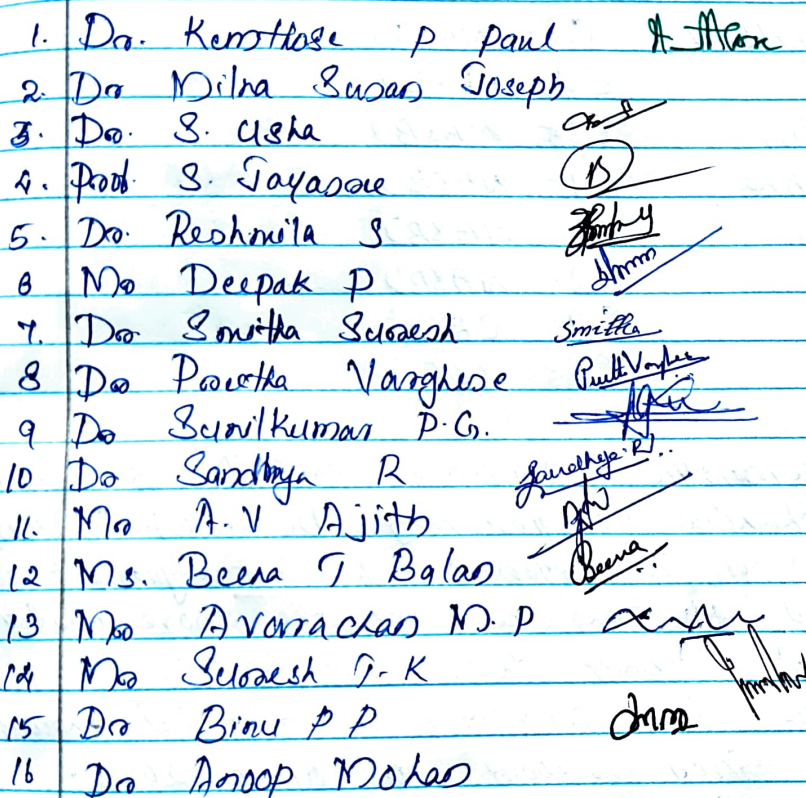 1. Dr. Kemthose P Paul
2. Dr Milna Susan Joseph
3. Dr. S. Usha
4. Prof. S. Jayasree
5. Dr. Reshmila S
6 Mr Deepak P
7. Dr Smitha Suresh Smitha
8 Dr Preetha Varghese
9 Dr Sunilkumar P.G.
10 Dr Sandhya R Sandhya.R
11. Mr A.V Ajith
12 Ms. Beena T Balan Beena
13 Mr Avarachan M.P
14 Mr Suresh T.K
15 Dr Binu P P
16 Dr Anoop Mohan